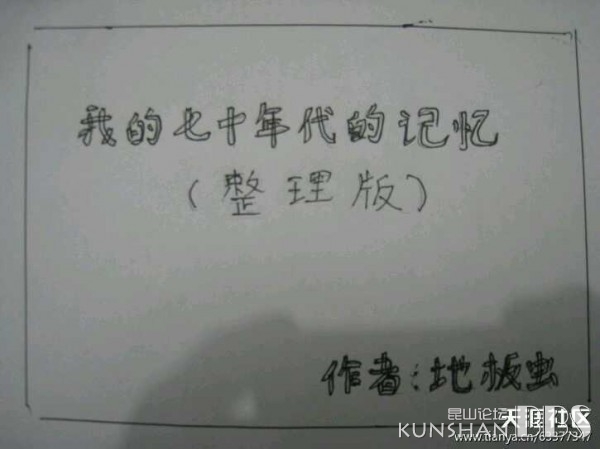 我的七十年代的记忆
(整理版)
作者:地板虫
昆山论坛
天涯社区
KUNSHAN BBS
www.tianya.cn/63377347